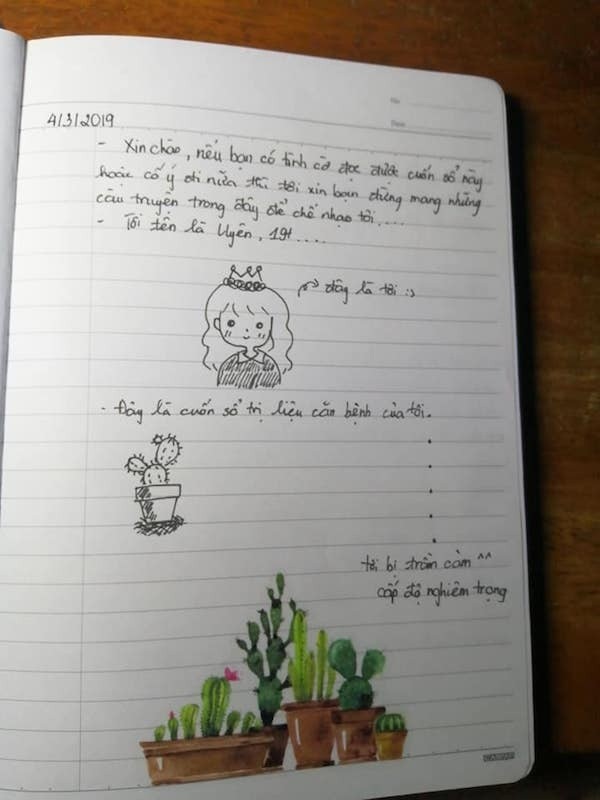 4/3/2019
- Xin chào, nếu bạn có tình cờ đọc được cuốn sổ này
hoặc cố ý đi nữa thì tôi xin bạn đừng mang những
câu truyện trong đây để chế nhạo tôi....
- Tôi tên là Uyên, 19t.....
đây là tôi :)
- Đây là cuốn sổ trị liệu căn bệnh của tôi.
tôi bị trầm cảm ^^
cấp độ nghiêm trọng